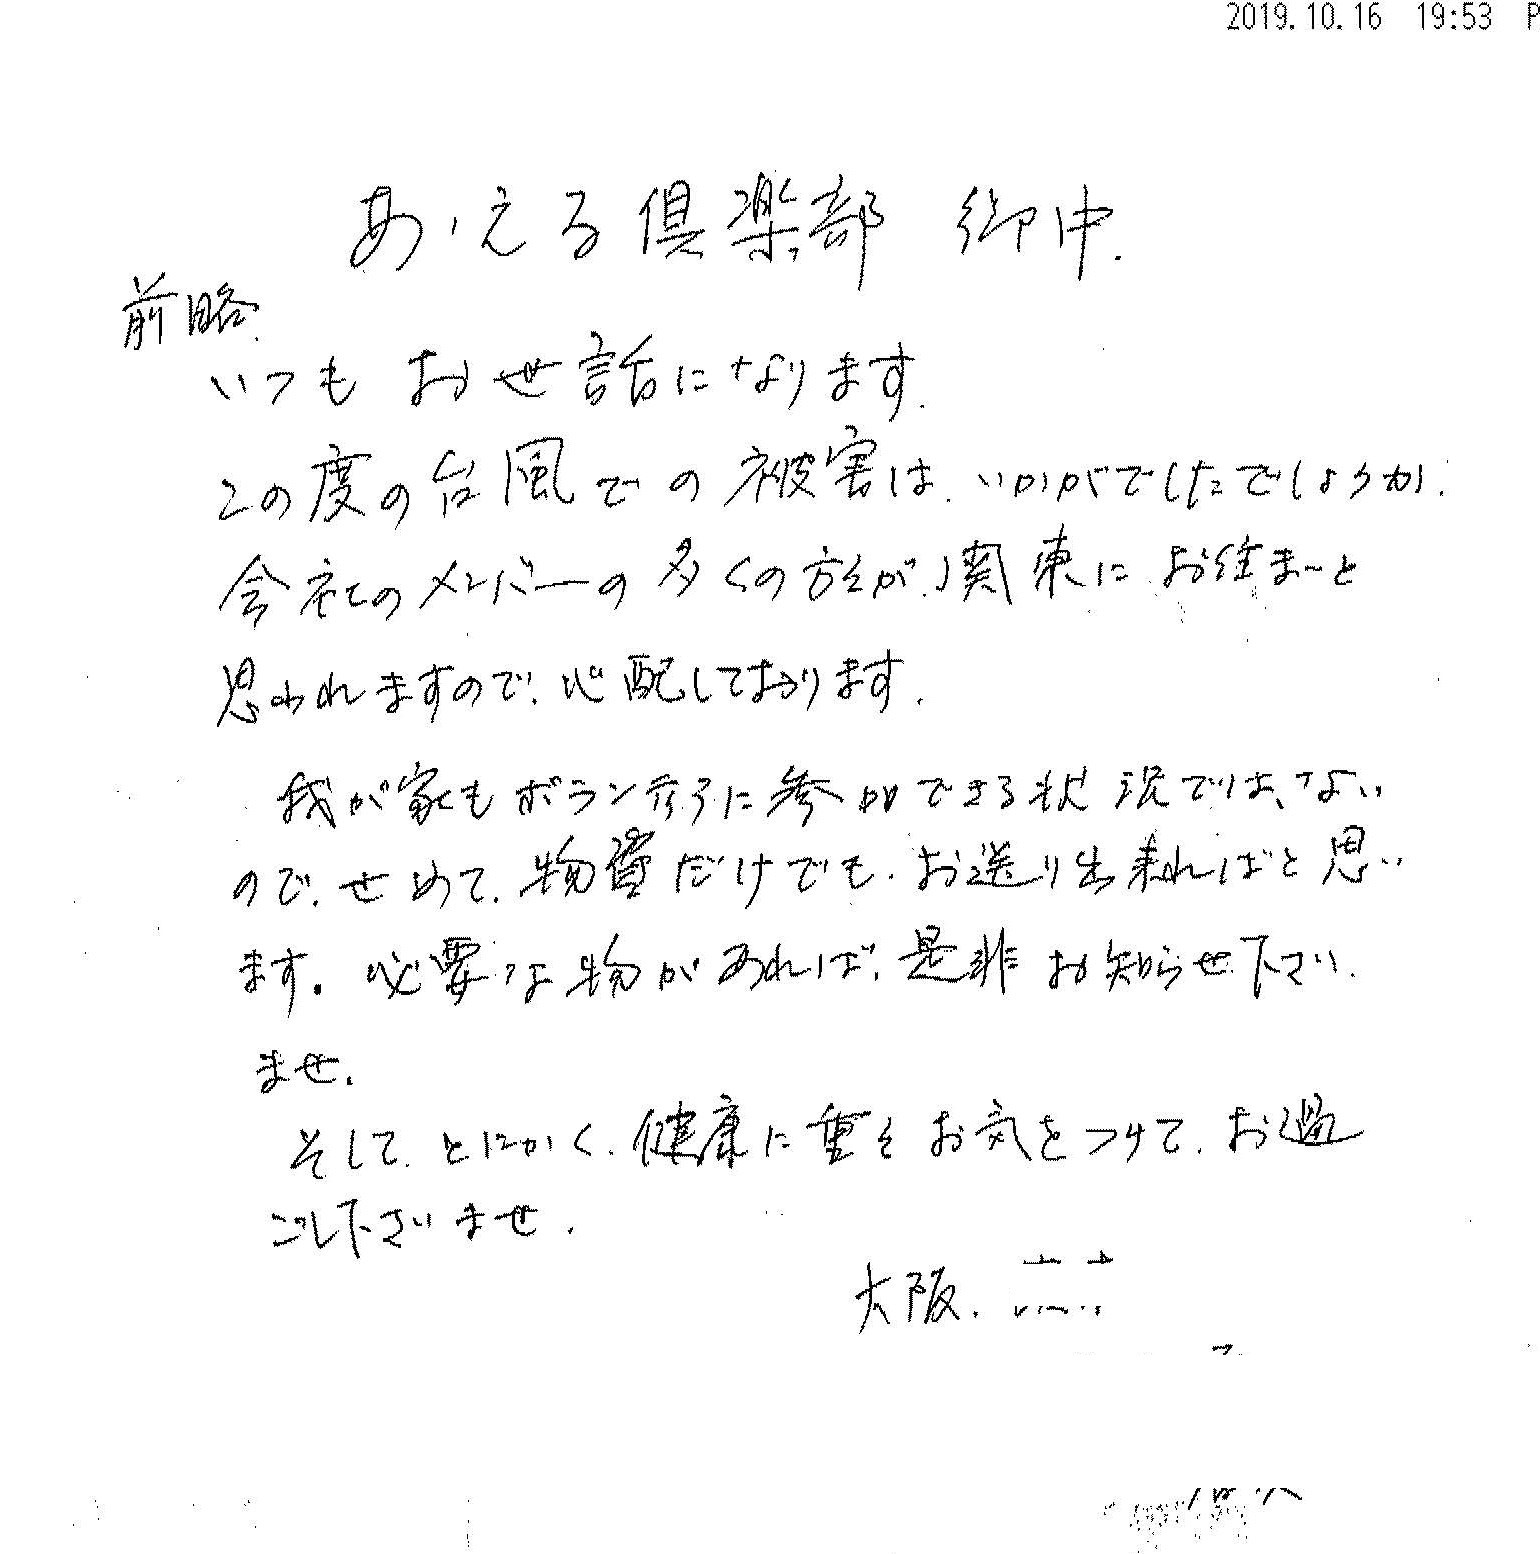 2019.10.16 19:53 P
あ・える倶楽部 御中.
前略.
いつも お世話になります.
この度の台風での被害は、いかがでしたでしょうか.
会社のメンバーの多くの方々が、関東にお住まいと
思われますので、心配しております.
我が家もボランティアに参加できる状況では、ない
ので、せめて、物資だけでも、お送り出来ればと思い
ます。必要な物があれば、是非お知らせ下さい
ませ.
そして、とにかく、健康に重々お気をつけて、お過
ごし下さいませ.
大阪.